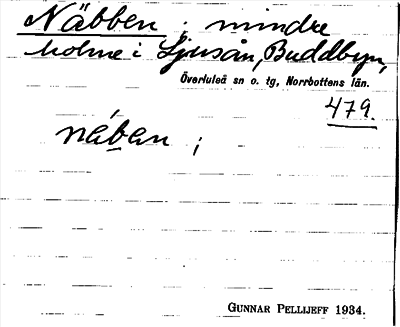 Näbben ; mindre
holme i Ljusån, Buddbyn,
Överluleå sn o. tg, Norrbottens län.
479.
nában ;
GUNNAR PELLIJEFF 1934.